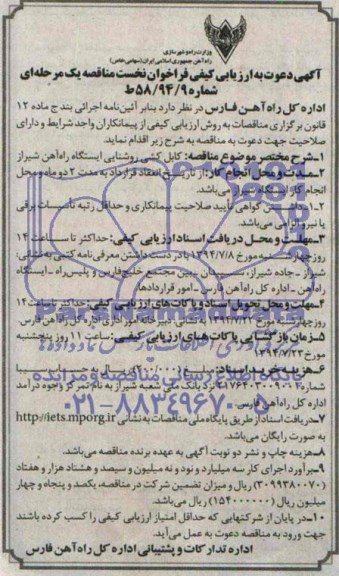 وزارت راه و شهرسازی
راه آهن جمهوری اسلامی ایران (سهامی خاص)
آگهی دعوت به ارزیابی کیفی فراخوان نخست مناقصه یک مرحله‌ای
شماره ۵۸/۹۴/۹ط
اداره کل راه‌آهن فارس در نظر دارد بنابر آئین‌نامه اجرائی بند ج ماده ۱۲
قانون برگزاری مناقصات به روش ارزیابی کیفی از پیمانکاران واجد شرایط و دارای
صلاحیت جهت دعوت به مناقصه به شرح زیر اقدام نماید.
۱-شرح مختصر موضوع مناقصه: کابل کشی روشنایی ایستگاه راه‌آهن شیراز
۲-مدت و محل انجام کار: از تاریخ انعقاد قرارداد به مدت ۲ دو ماه و محل
انجام کار ایستگاه شیراز می‌باشد.
گواهی تأیید صلاحیت پیمانکاری و حداقل رتبه تأسیسات برقی
یا نیرو الزامی می‌باشد.
۳-مهلت و محل دریافت اسناد ارزیابی کیفی: حداکثر تا ساعت ۱۴
روز چهارشنبه مورخ ۱۳۹۴/۷/۸ با در دست داشتن معرفی‌نامه کتبی به نشانی:
شیراز - جاده شیراز، سپیدان - بین مجتمع خلیج فارس و پلیس راه - ایستگاه
راه‌آهن - اداره کل راه‌آهن فارس - امور قراردادها
۴-مهلت و محل تحویل اسناد و پاکات‌های ارزیابی کیفی: حداکثر تا ساعت ۱۴
روز چهارشنبه مورخ ۱۳۹۴/۷/۲۲ به نشانی: دبیرخانه امور اداری اداره کل راه‌آهن فارس
۵-زمان بازگشایی پاکات‌های ارزیابی کیفی: ساعت ۱۱ روز پنجشنبه
مورخ ۱۳۹۴/۷/۲۳
۶-هزینه خرید اسناد: ریال به حساب
شماره بانک ملی شعبه شیراز به نام تمرکز وجوه درآمد
اداره کل راه‌آهن فارس
۷-دریافت اسناد از طریق پایگاه ملی مناقصات به نشانی http://iets.mporg.ir
به صورت رایگان می‌باشد.
۸-هزینه چاپ و نشر دو نوبت آگهی به عهده برنده مناقصه می‌باشد.
۹-برآورد اجرای کار سه میلیارد و نود و نه میلیون و سیصد و هشتاد هزار و هفتاد
(۳۰۹۹۳۸۰۰۷۰) ریال و میزان تضمین شرکت در مناقصه، یکصد و پنجاه و چهار
میلیون ریال (۱۵۴۰۰۰۰۰۰) ریال می‌باشد.
۱۰-در پایان از شرکتهایی که حداقل امتیاز ارزیابی کیفی را کسب کرده باشند
جهت ورود به مناقصه دعوت به عمل می‌آید.
اداره تدارکات و پشتیبانی اداره کل راه‌آهن فارس
ParsNamadData
پایگاه اطلاع رسانی مناقصه و مزایده
۰۲۱-۸۸۳۴۹۶۷۰-۵